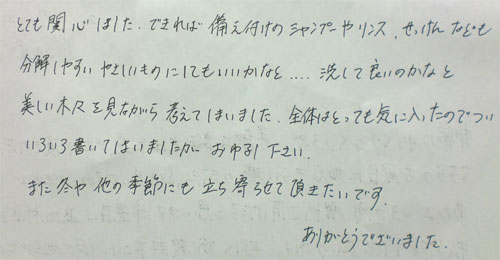 とても関心しました。できれば備え付けのシャンプーやリンス、せっけんなども
分解しやすいやさしいものにしてもいいかなと.... 流して良いのかなと
美しい木々を見ながら考えてしまいました。全体はとっても気に入ったのでつい
いろいろ書いてしまいましたが お許し下さい.
また冬や他の季節にも立ち寄らせて頂きたいです。
ありがとうございました.